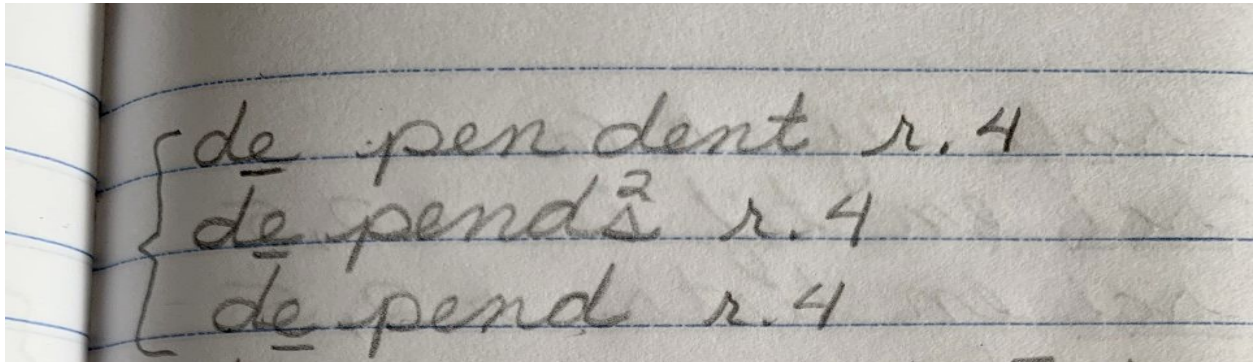 de pen dent r. 4
de pends² r. 4
de pend r. 4